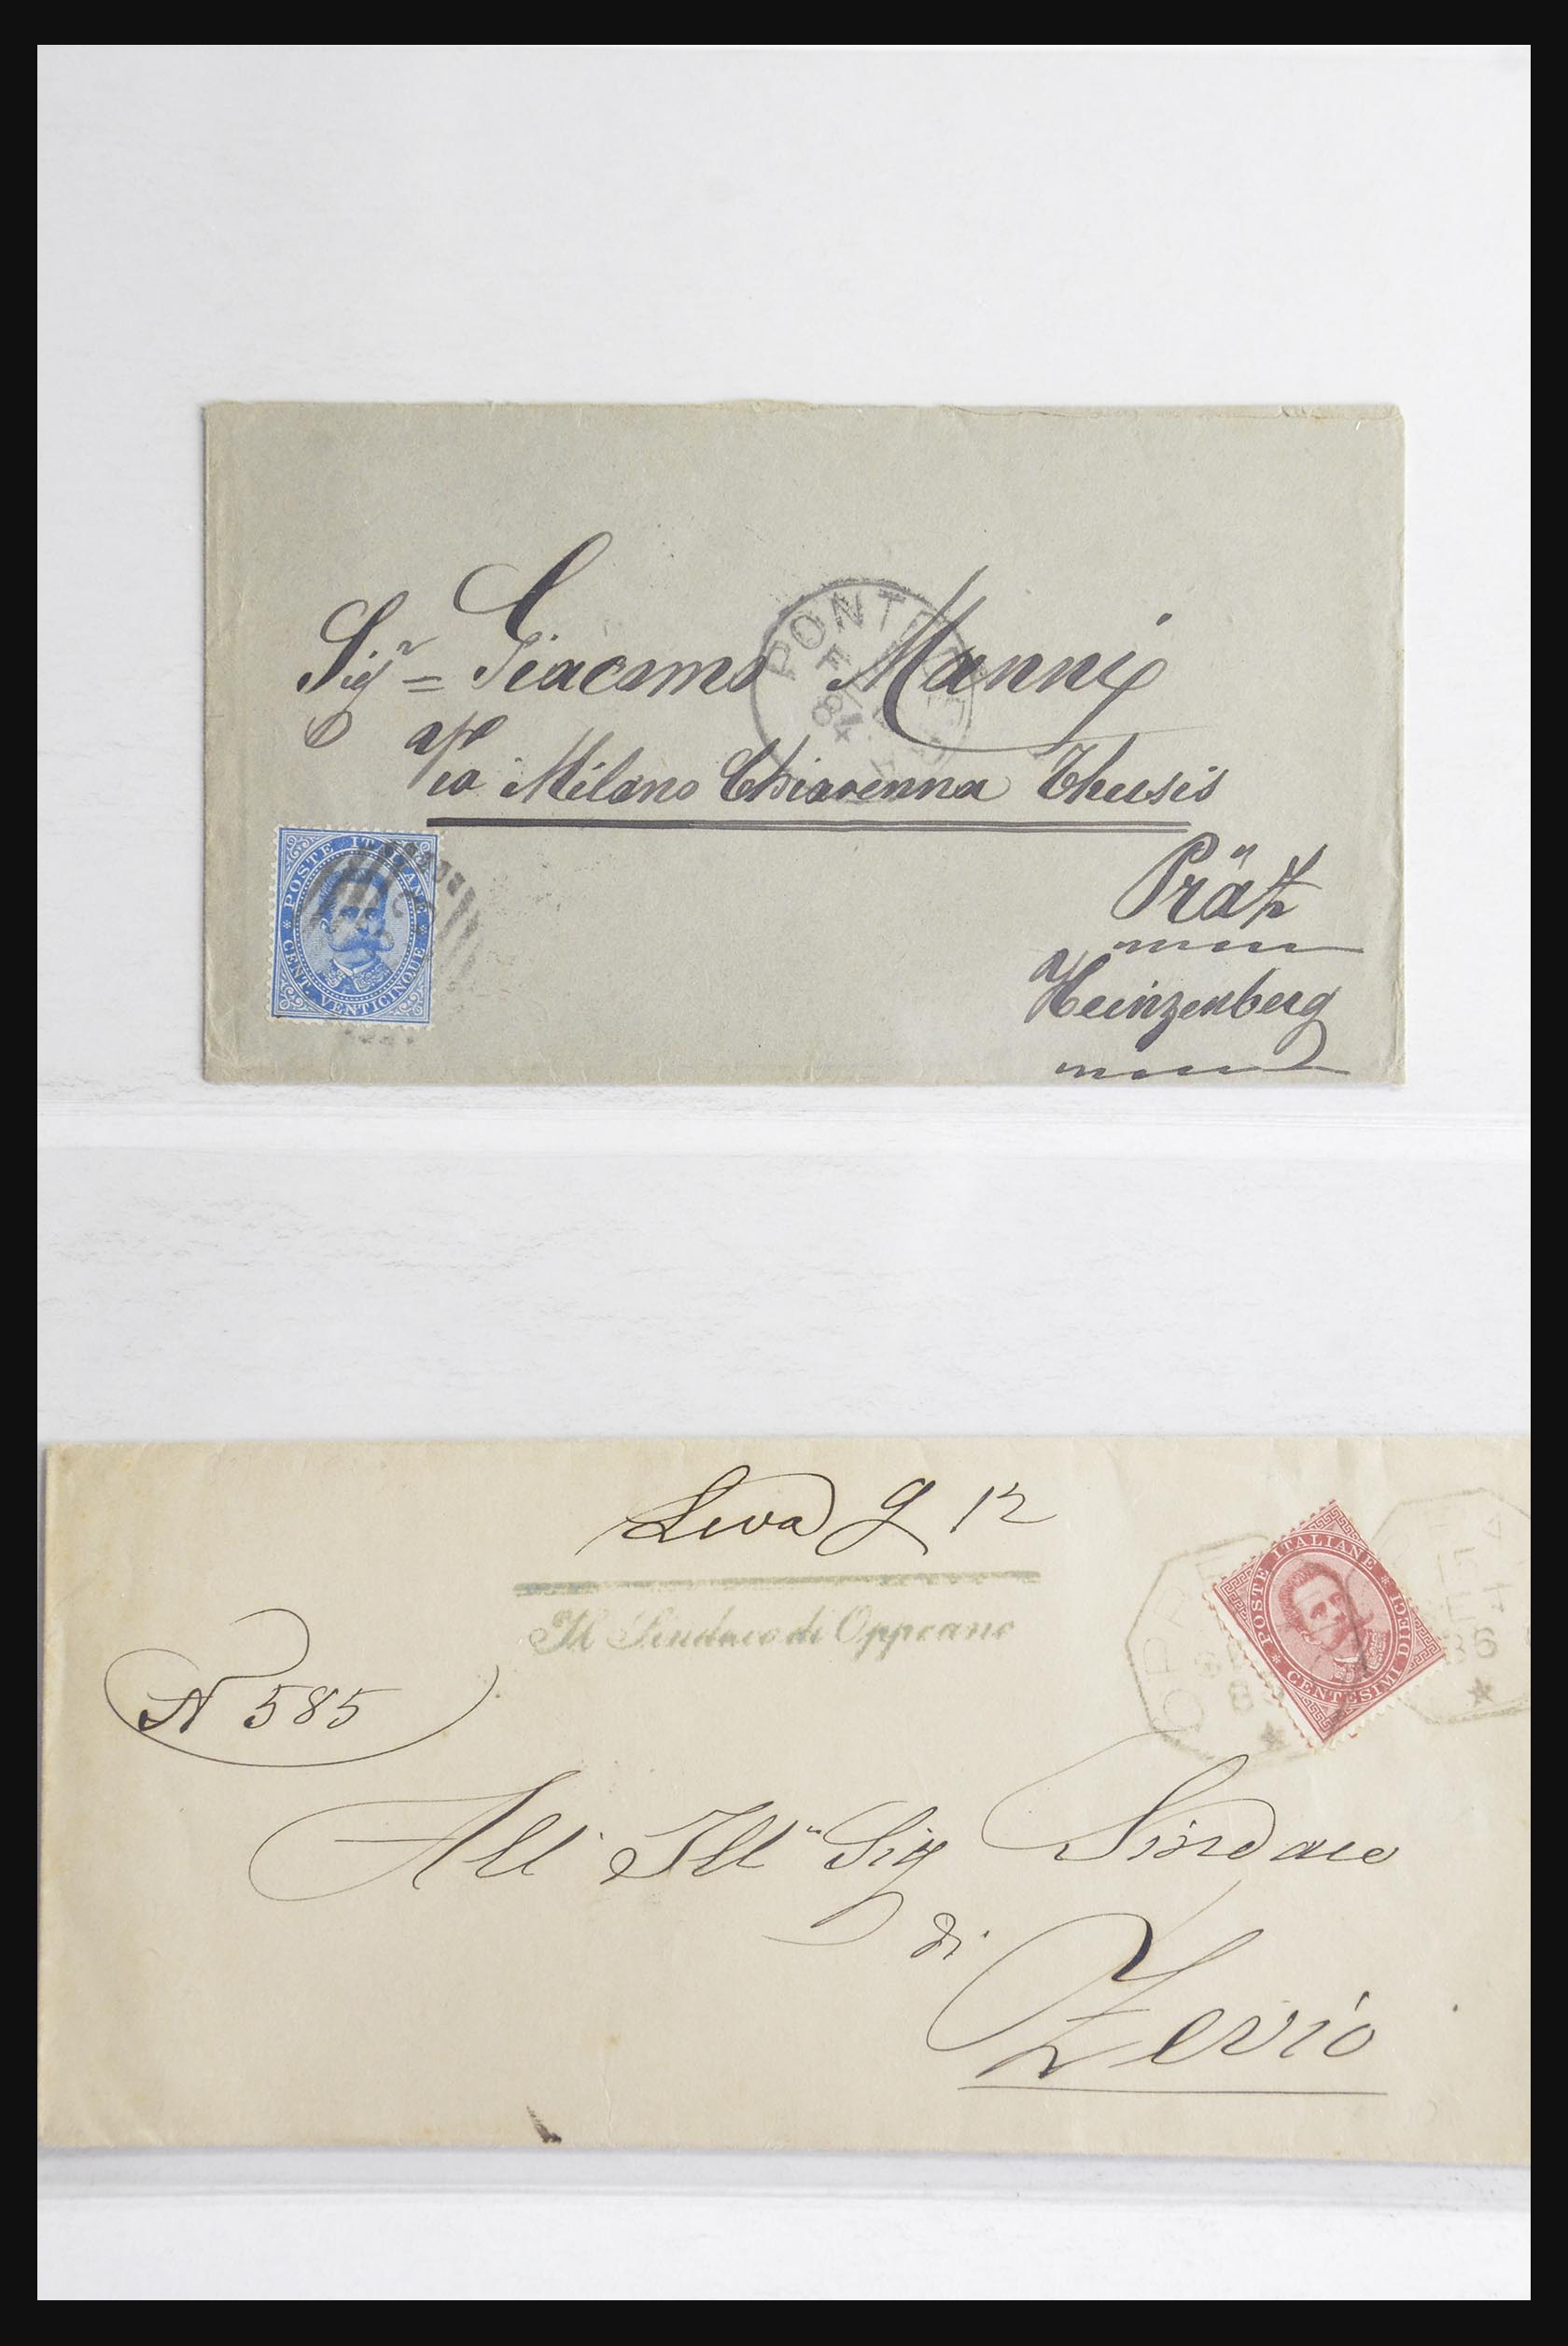 Sigr = Giacomo Manni
a/p
via Milano Chiavenna Thusis
PONT
84
POSTE ITALIANE
CENT. VENTICINQUE
Prätz
a/
Heinzenberg
Leva 12
Il Sindaco di Oppeano
N 585
OPPE
POSTE ITALIANE
CENTESIMI DIECI
15
86
All' Ill Sig Sindaco
di
Zevio